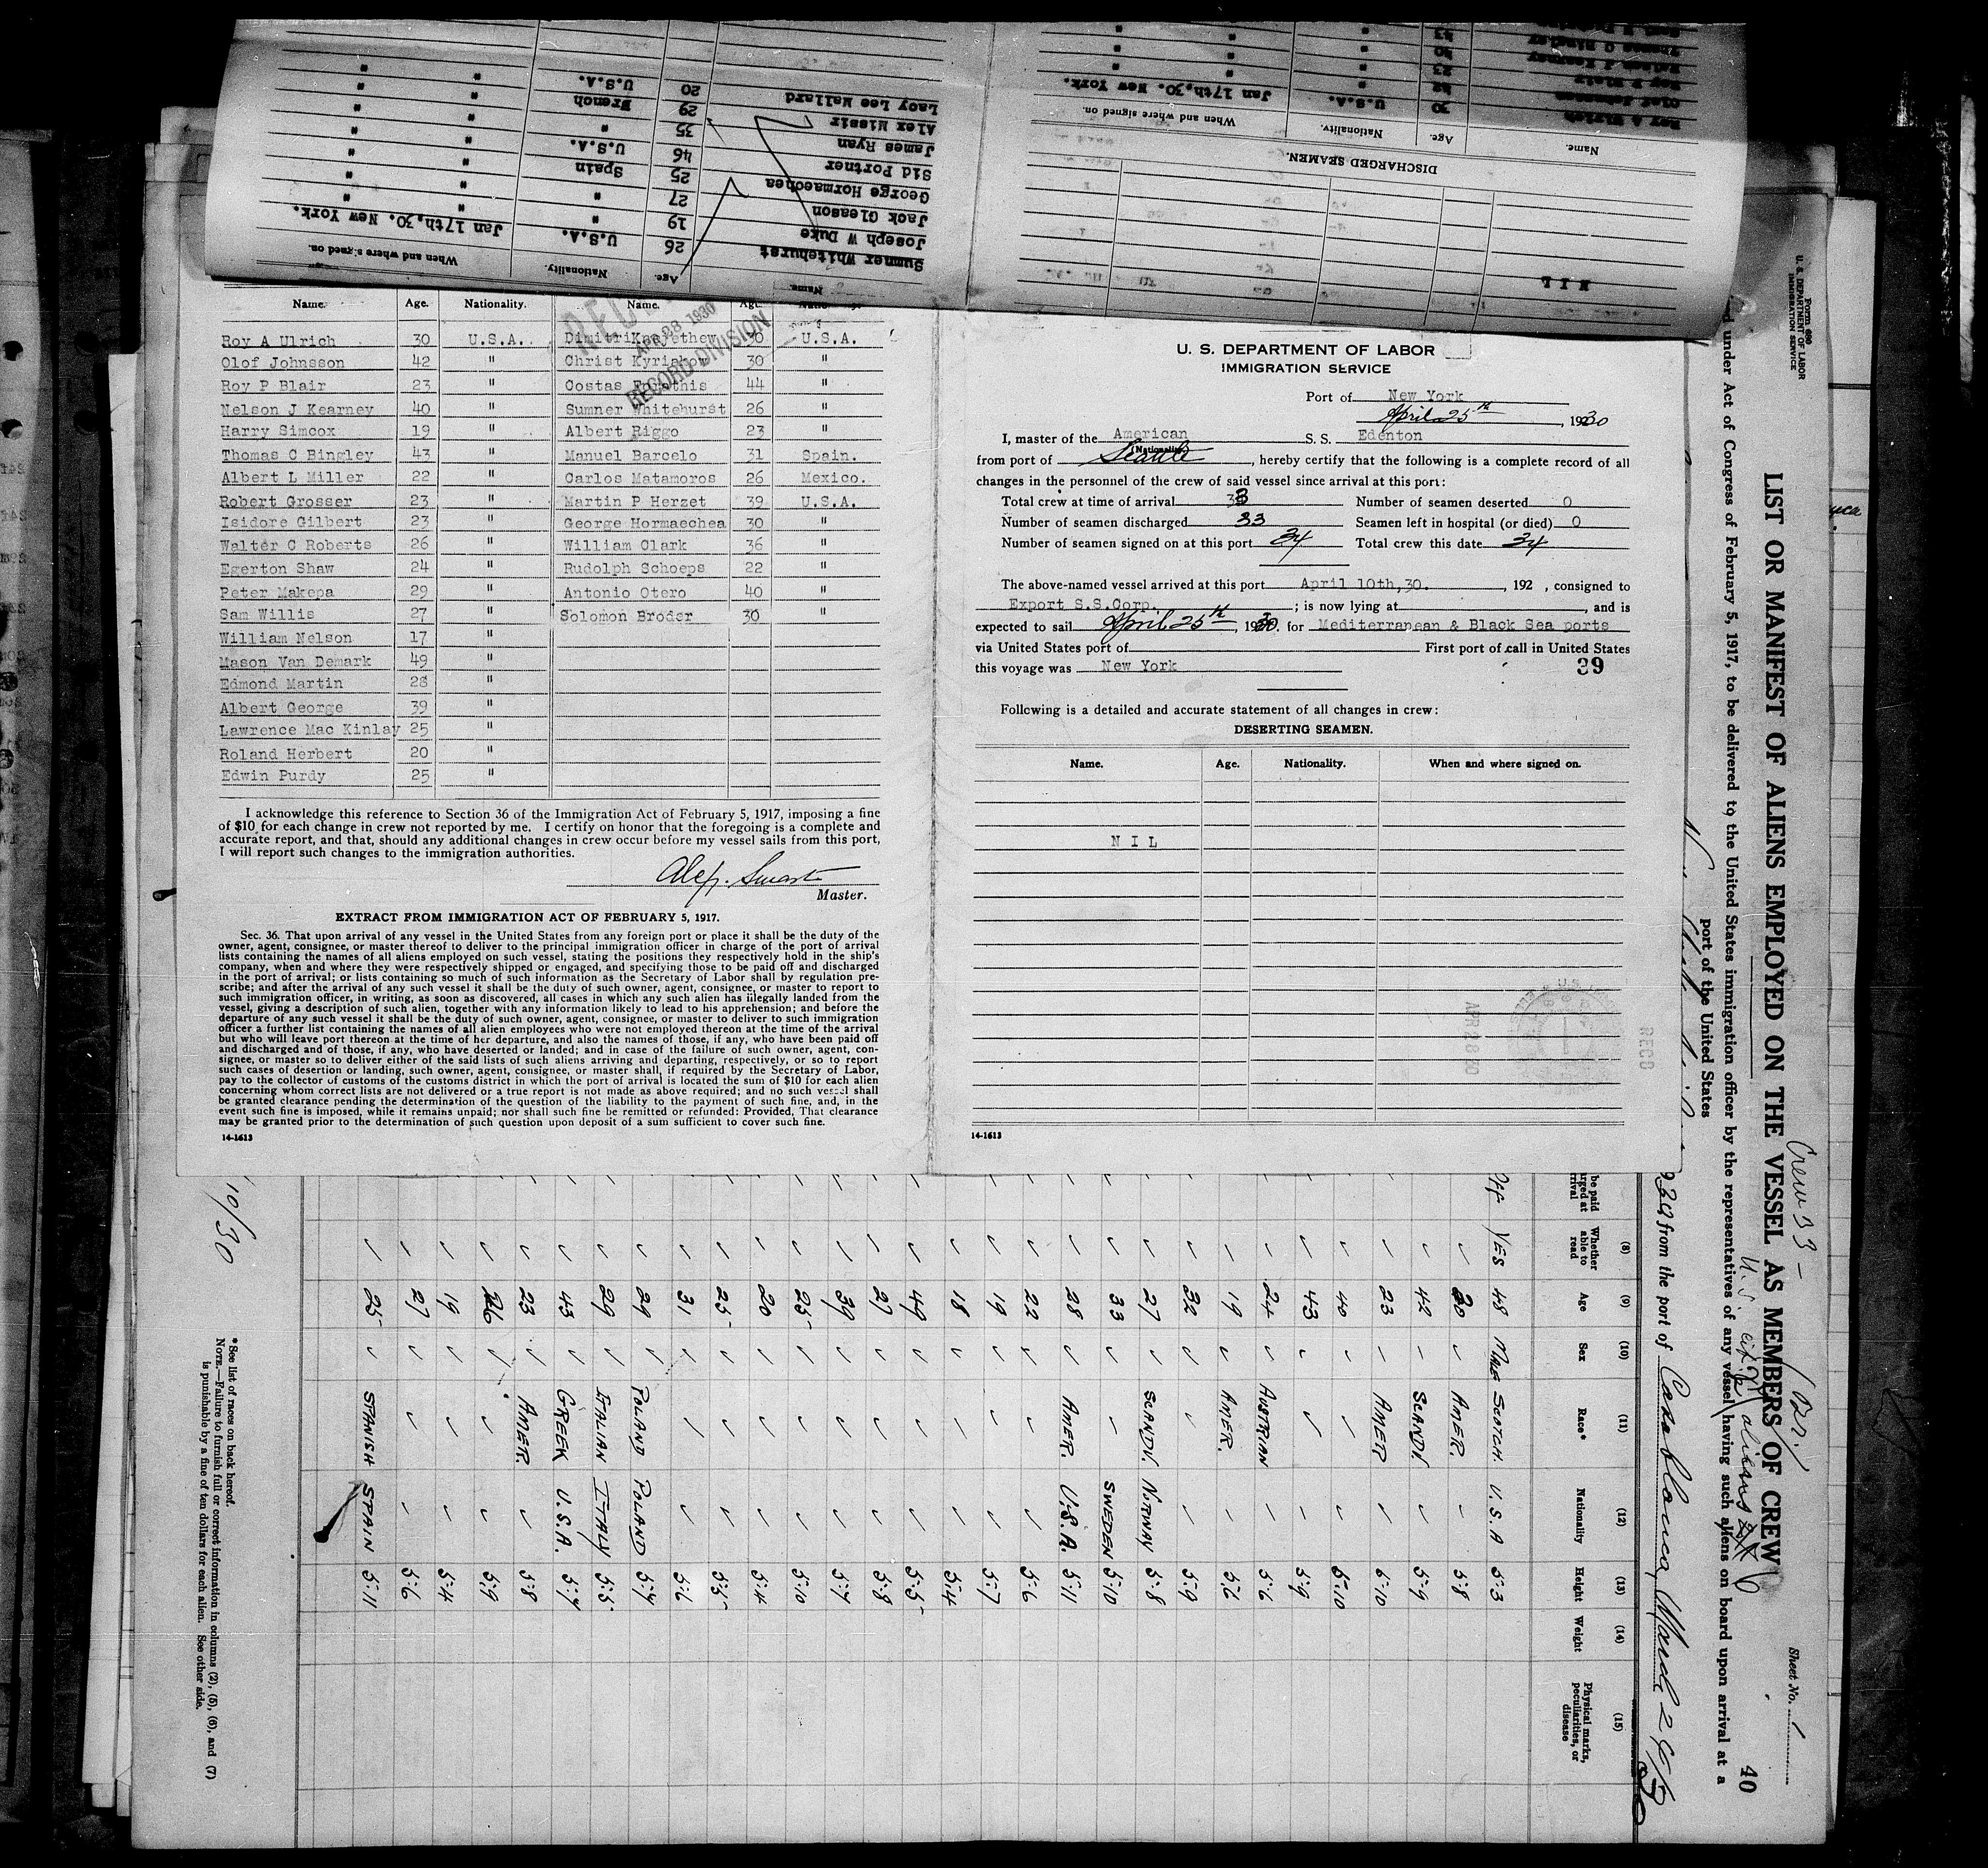 Sumner Whitehurst 26 U.S.A. Jan 17th,30. New York.
Joseph W Duke 19 " " "
Jack Gleason 27 " " "
George Hormaechea 25 Spain " "
Sid Portner 46 U.S.A. " "
James Ryan 35 " " "
Alex Missir 29 French " "
Lacy Lee Mallard 20 U.S.A. " "
Name. Age. Nationality. When and where signed on.
NIL
DISCHARGED SEAMEN.
Name. Age. Nationality. When and where signed on.
Roy A Ulrich 30 U.S.A. Jan 17th,30. New York.
Olof Johnsson 42 " " "
Roy P Blair 23 " " "
Nelson J Kearney 40 " " "
Thomas C Bingley 43 " " "
Name. Age. Nationality. Name. Age.
Roy A Ulrich 30 U.S.A. Dimitri 30 U.S.A.
Olof Johnsson 42 " Christ Kyriakow 30 "
Roy P Blair 23 " Costas 44 "
Nelson J Kearney 40 " Sumner Whitehurst 26 "
Harry Simcox 19 " Albert Riggo 23 "
Thomas C Bingley 43 " Manuel Barcelo 31 Spain.
Albert L Miller 22 " Carlos Matamoros 26 Mexico.
Robert Grosser 23 " Martin P Herzet 39 U.S.A.
Isidore Gilbert 23 " George Hormaechea 30 "
Walter C Roberts 26 " William Clark 36 "
Egerton Shaw 24 " Rudolph Schoeps 22 "
Peter Makepa 29 " Antonio Otero 40 "
Sam Willis 27 " Solomon Broder 30 "
William Nelson 17 "
Mason Van Demark 49 "
Edmond Martin 28 "
Albert George 39 "
Lawrence Mac Kinlay 25 "
Roland Herbert 20 "
Edwin Purdy 25 "
APR 28 1930
RECORD DIVISION
I acknowledge this reference to Section 36 of the Immigration Act of February 5, 1917, imposing a fine
of $10 for each change in crew not reported by me. I certify on honor that the foregoing is a complete and
accurate report, and that, should any additional changes in crew occur before my vessel sails from this port,
I will report such changes to the immigration authorities.
Master.
EXTRACT FROM IMMIGRATION ACT OF FEBRUARY 5, 1917.
Sec. 36. That upon arrival of any vessel in the United States from any foreign port or place it shall be the duty of the
owner, agent, consignee, or master thereof to deliver to the principal immigration officer in charge of the port of arrival
lists containing the names of all aliens employed on such vessel, stating the positions they respectively hold in the ship's
company, when and where they were respectively shipped or engaged, and specifying those to be paid off and discharged
in the port of arrival; or lists containing so much of such information as the Secretary of Labor shall by regulation pre-
scribe; and after the arrival of any such vessel it shall be the duty of such owner, agent, consignee, or master to report to
such immigration officer, in writing, as soon as discovered, all cases in which any such alien has illegally landed from the
vessel, giving a description of such alien, together with any information likely to lead to his apprehension; and before the
departure of any such vessel it shall be the duty of such owner, agent, consignee, or master to deliver to such immigration
officer a further list containing the names of all alien employees who were not employed thereon at the time of the arrival
but who will leave port thereon at the time of her departure, and also the names of those, if any, who have been paid off
and discharged and of those, if any, who have deserted or landed; and in case of the failure of such owner, agent, con-
signee, or master so to deliver either of the said lists of such aliens arriving and departing, respectively, or so to report
such cases of desertion or landing, such owner, agent, consignee, or master shall, if required by the Secretary of Labor,
pay to the collector of customs of the customs district in which the port of arrival is located the sum of $10 for each alien
concerning whom correct lists are not delivered or a true report is not made as above required; and no such vessel shall
be granted clearance pending the determination of the question of the liability to the payment of such fine, and, in the
event such fine is imposed, while it remains unpaid; nor shall such fine be remitted or refunded: Provided, That clearance
may be granted prior to the determination of such question upon deposit of a sum sufficient to cover such fine.
14-1613
U. S. DEPARTMENT OF LABOR
IMMIGRATION SERVICE
Port of New York
April 25th, 1930
I, master of the American S. S. Edenton
(Nationality)
from port of Seattle, hereby certify that the following is a complete record of all
changes in the personnel of the crew of said vessel since arrival at this port:
Total crew at time of arrival 33 Number of seamen deserted 0
Number of seamen discharged 33 Seamen left in hospital (or died) 0
Number of seamen signed on at this port 34 Total crew this date 34
The above-named vessel arrived at this port April 10th,30. , 192 , consigned to
Export S.S.Corp. ; is now lying at , and is
expected to sail April 25th, 1930. for Mediterranean & Black Sea ports
via United States port of First port of call in United States
this voyage was New York 39
Following is a detailed and accurate statement of all changes in crew:
DESERTING SEAMEN.
Name. Age. Nationality. When and where signed on.
NIL
APR 28 30
REC'D
14-1613
Form 680
U. S. DEPARTMENT OF LABOR
IMMIGRATION SERVICE
Sheet No. 1
40
Crew 33 -
LIST OR MANIFEST OF ALIENS EMPLOYED ON THE VESSEL AS MEMBERS OF CREW
under Act of Congress of February 5, 1917, to be delivered to the United States immigration officer by the representatives of any vessel having such aliens on board upon arrival at a
port of the United States
from the port of Casablanca, March 29/30
(8) (9) (10) (11) (12) (13) (14) (15)
Whether able to read Age Sex Race* Nationality Height Weight Physical marks, peculiarities, or disease
YES 48 MALE SCOTCH. U.S.A 5:3
30 AMER. 5:8
42 SCANDI. 5:9
23 AMER 5:10
40 5:10
43 5:9
24 AUSTRIAN 5:6
19 AMER. 5:6
32 5:9
27 SCANDI. NORWAY 5:8
33 SWEDEN 5:10
28 AMER. U.S.A. 5:11
22 5:6
19 5:7
18 5:4
49 5:5
27 5:8
39 5:7
25 5:10
20 5:4
25 5:5
31 5:6
29 POLAND POLAND 5:7
29 ITALIAN ITALY 5:5
43 GREEK U.S.A. 5:7
23 AMER. 5:8
26 5:9
19 5:4
27 5:6
25 SPANISH SPAIN 5:11
10/30
*See list of races on back hereof.
NOTE.—Failure to furnish full or correct information in columns (2), (5), (6), and (7)
is punishable by a fine of ten dollars for each alien. See other side.